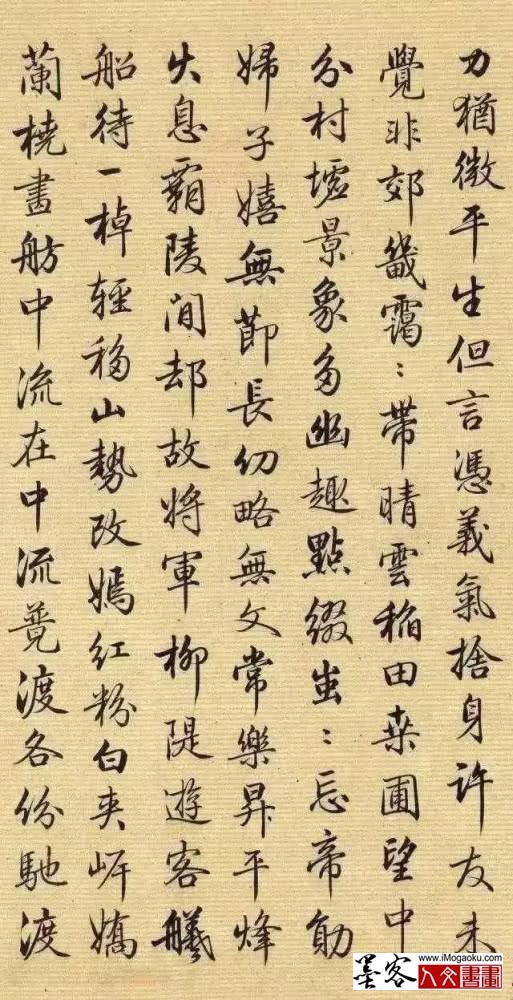 力猶微平生但言憑義氣捨身許友未
覺非郊畿靄〻帶晴雲稻田桒圃望中
分村墟景象多幽趣點綴蚩〻忘帝勛
婦子嬉無節長幼略無文常樂昇平烽
火息霸陵閒却故將軍柳隄遊客艤
船待一棹輕移山勢改嫣紅粉白夾岸嬌
蘭橈畫舫中流在中流竟渡各份馳渡
墨客
www.iMogaoku.com
人文書畫